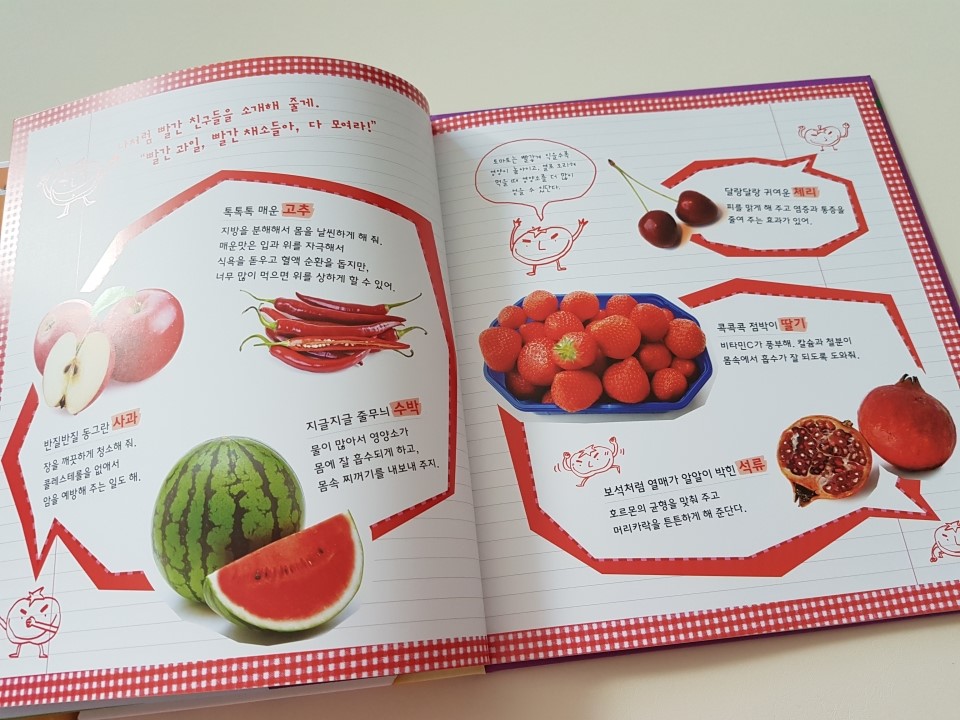 빨간 친구들을 소개해 줄게.
"빨간 과일, 빨간 채소들아, 다 모여라!"
톡톡톡 매운 고추
지방을 분해해서 몸을 날씬하게 해 줘.
매운맛은 입과 위를 자극해서
식욕을 돋우고 혈액 순환을 돕지만,
너무 많이 먹으면 위를 상하게 할 수 있어.
반질반질 동그란 사과
장을 깨끗하게 청소해 줘.
콜레스테롤을 없애서
암을 예방해 주는 일도 해.
지글지글 줄무늬 수박
물이 많아서 영양소가
몸에 잘 흡수되게 하고,
몸속 찌꺼기를 내보내 주지.
토마토는 빨갛게 익을수록
영양이 높아지고, 열로 조리해
먹을 때 영양소를 더 많이
얻을 수 있단다.
달랑달랑 귀여운 체리
피를 맑게 해 주고 염증과 통증을
줄여 주는 효과가 있어.
콕콕콕 점박이 딸기
비타민C가 풍부해. 칼슘과 철분이
몸속에서 흡수가 잘 되도록 도와줘.
보석처럼 열매가 알알이 박힌 석류
호르몬의 균형을 맞춰 주고
머리카락을 튼튼하게 해 준단다.